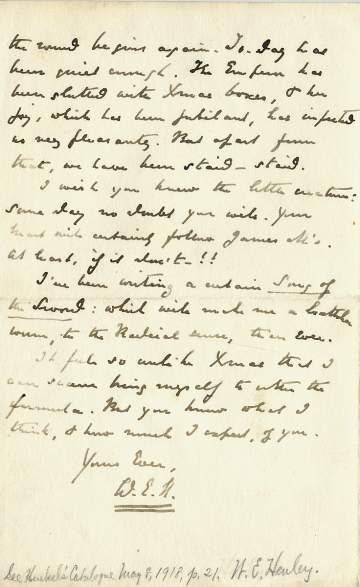 the round begins again. To-day has
been quiet enough. The Emperor has
been glutted with Xmas boxes, & her
joy, which has been jubilant, has infected
us very pleasantly. But apart from
that, we have been staid – staid.
I wish you knew the little creature:
some day no doubt you will. Your
heart will certainly follow James M's.
At least, if it don't – !!
I've been writing a certain Song of
the Sword: which will make me a
worse, to the Radical sense, than ever.
It feels so unlike Xmas that I
can scarce bring myself to utter the
formula. But you know what I
think, & how much I expect, of you.
Yours Ever,
W.E.H.
See Henkel's Catalogue, May 8, 1918, p. 21. W. E. Henley.